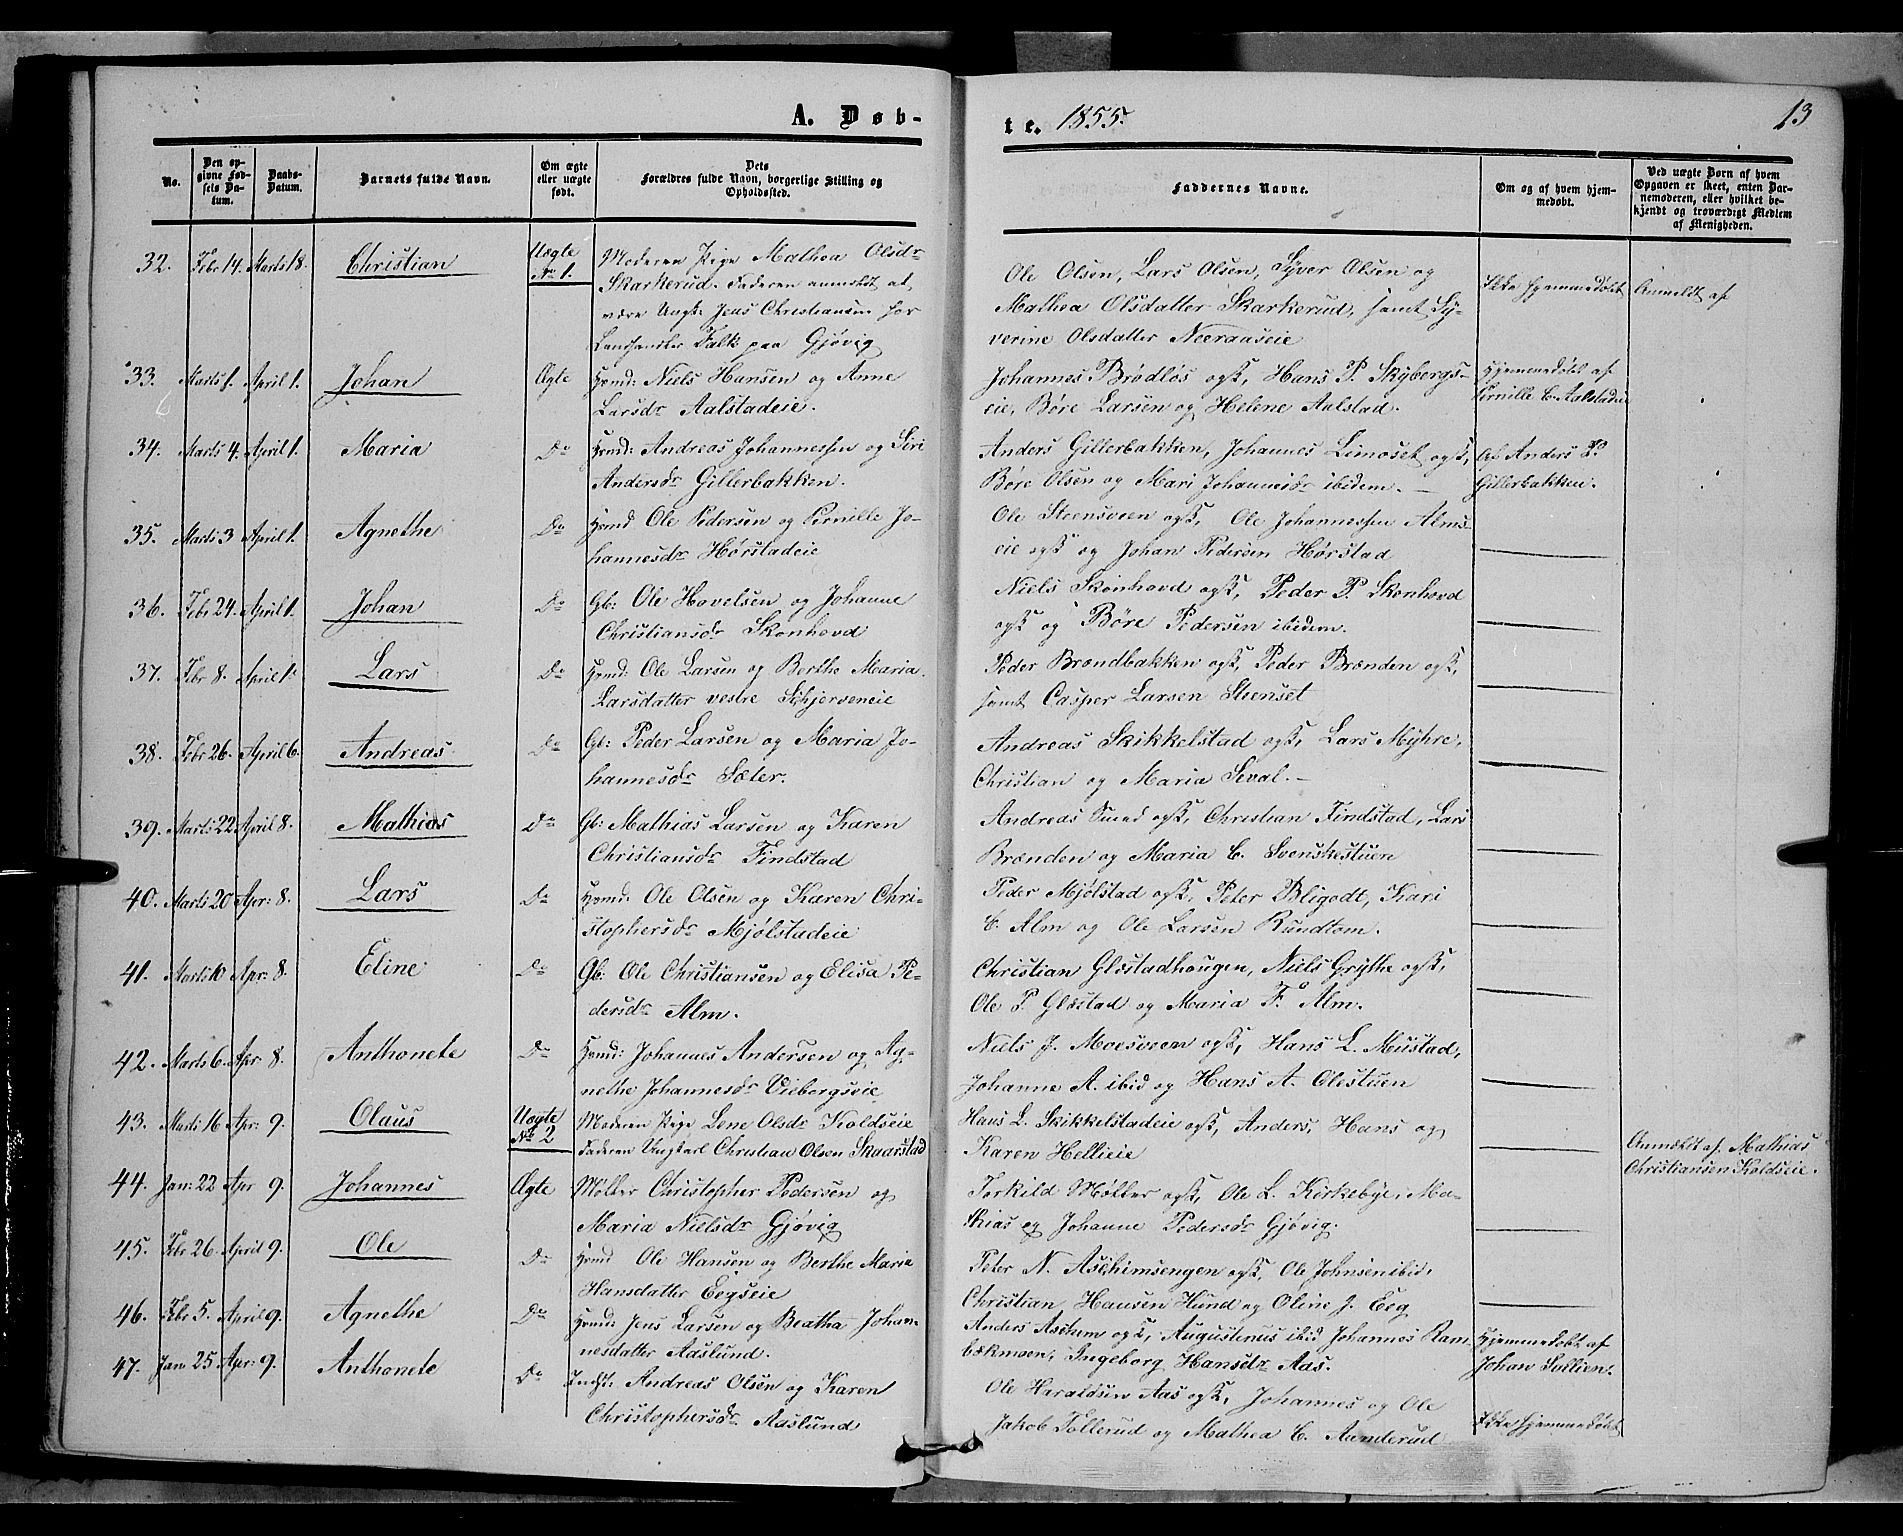 A. Døb-
te. 1855.
13
No.
Den op-
givne Fød-
sels Da-
tum.
Daabs-
Datum.
Barnets fulde Navn.
Om ægte
eller uægte
født.
Dets
Forældres fulde Navn, borgerlige Stilling og
Opholdssted.
Faddernes Navne.
Om og af hvem hjem-
medøbt.
Ved uægte Børn af hvem
Opgaven er skeet, enten Bar-
nemoderen, eller hvilket be-
kjendt og troværdigt Medlem
af Menigheden.
32. Febr 14. Marts 18. Christian Uægte No 1. Moderen Pige Mathea Olsdr
Skarkerud. Faderen anmeldt at
være Ungk: Jens Christiansen hos
Landhandler Falk paa Gjøvig
Ole Olsen, Lars Olsen, Syver Olsen og
Mathea Olsdatter Skarkerud, samt Sy-
verine Olsdatter Neeraaseie
Ikke hjemmedøbt
Anmeldt af
33. Marts 1. April 1. Johan Ægte Hmd: Niels Hansen og Anne
Larsdr Aalstadeie.
Johannes Brødløs ogsk, Hans P. Skybergs-
eie, Børe Larsen og Helene Aalstad.
Hjemmedøbt af
Pernille C. Aalstadeie
34. Marts 4. April 1. Maria Do Hmd: Andreas Johannessen og Siri
Andersdr Gillerbakken.
Anders Gillerbakken, Johannes Limoset ogsk,
Børe Olsen og Mari Johannesdr ibidem.
Af Anders P.
Gillerbakken.
35. Marts 3 April 1. Agnethe Do Hmd Ole Pedersen og Pernille Jo-
hannesdr Hørstadeie
Ole Steensveen ogsk, Ole Johannessen Alms-
eie ogsk og Johan Pedersen Hørstad
36. Febr 24. April 1. Johan Do Gb: Ole Hovelsen og Johanne
Christiansdr Skonhovd
Niels Skonhovd ogsk, Peder P. Skonhovd
ogsk og Børe Pedersen ibidem.
37. Febr 8. April 1. Lars Do Hmd: Ole Larsen og Berthe Maria
Larsdatter vestre Schjerveneie
Peder Brondbakken ogsk, Peder Brænden ogsk,
samt Casper Larsen Steenset
38. Febr 26. April 6. Andreas Do Gb: Peder Larsen og Maria Jo-
hannesdr Sæter.
Andreas Skikkelstad ogsk, Lars Myhre,
Christian og Maria Seval.
39. Marts 22 April 8. Mathias Do Gb: Mathias Larsen og Karen
Christiansdr Findstad
Andreas Smed ogsk, Christian Findstad, Lars
Brænden og Maria C. Svenskestuen
40. Marts 20 Apr: 8. Lars Do Hmd: Ole Olsen og Karen Chri-
stophersdr Mjølstadeie
Peder Mjølstad ogsk, Peter Bligodt, Kari
C. Alm og Ole Larsen Rundtom.
41. Marts 10 Apr: 8. Eline Do Gb: Ole Christiansen og Elisa Pe-
dersdr Alm.
Christian Glæstadhougen, Niels Grythe ogsk,
Ole P. Glæstad og Maria F. Alm.
42. Marts 6. Apr: 8. Anthonete Do Hmd: Johannes Andersen og Ag-
nethe Johannesdr Viebergseie
Niels J. Moesveen ogsk, Hans L. Meustad,
Johanne A. ibid og Hans A. Olestuen
43. Marts 16 Apr: 9. Olaus Uægte No 2 Moderen Pige Lene Olsdr Koldseie
Faderen Ungkarl Christian Olsen Skaarstad
Hans L. Skikkelstadeie ogsk, Anders, Hans og
Karen Hellieie
Anmeldt af Mathias
Christiansen Koldseie.
44. Jan: 22 Apr 9. Johannes Ægte Møller Christopher Pedersen og
Maria Nielsdr Gjøvig
Torkild Møller ogsk, Ole L. Kirkebye, Ma-
thias og Johanne Pedersdr Gjøvig.
45. Febr 26. April 9. Ole Do Hmd Ole Hansen og Berthe Marie
Hansdatter Eegseie
Peter N. Aschimsengen ogsk, Ole Johnsen ibid,
Christian Hansen Hund og Oline J. Eeg
46. Febr 5. April 9. Agnethe Do Hmd: Jens Larsen og Beatha Johan-
nesdatter Aaslund.
Anders Aschim ogsk, Augustinus ibid Johannes Ram-
bækmoen, Ingeborg Hansdr Aas.
Hjemmedøbt af
Johan Sollien.
47. Jan 25 Apr: 9. Anthonete Do Indst: Andreas Olsen og Karen
Christophersdr Aaslund
Ole Haraldsen Aas ogsk, Johannes og Ole
Jakob Tollerud og Mathea C. Aamderud
Ikke hjemmedøbt